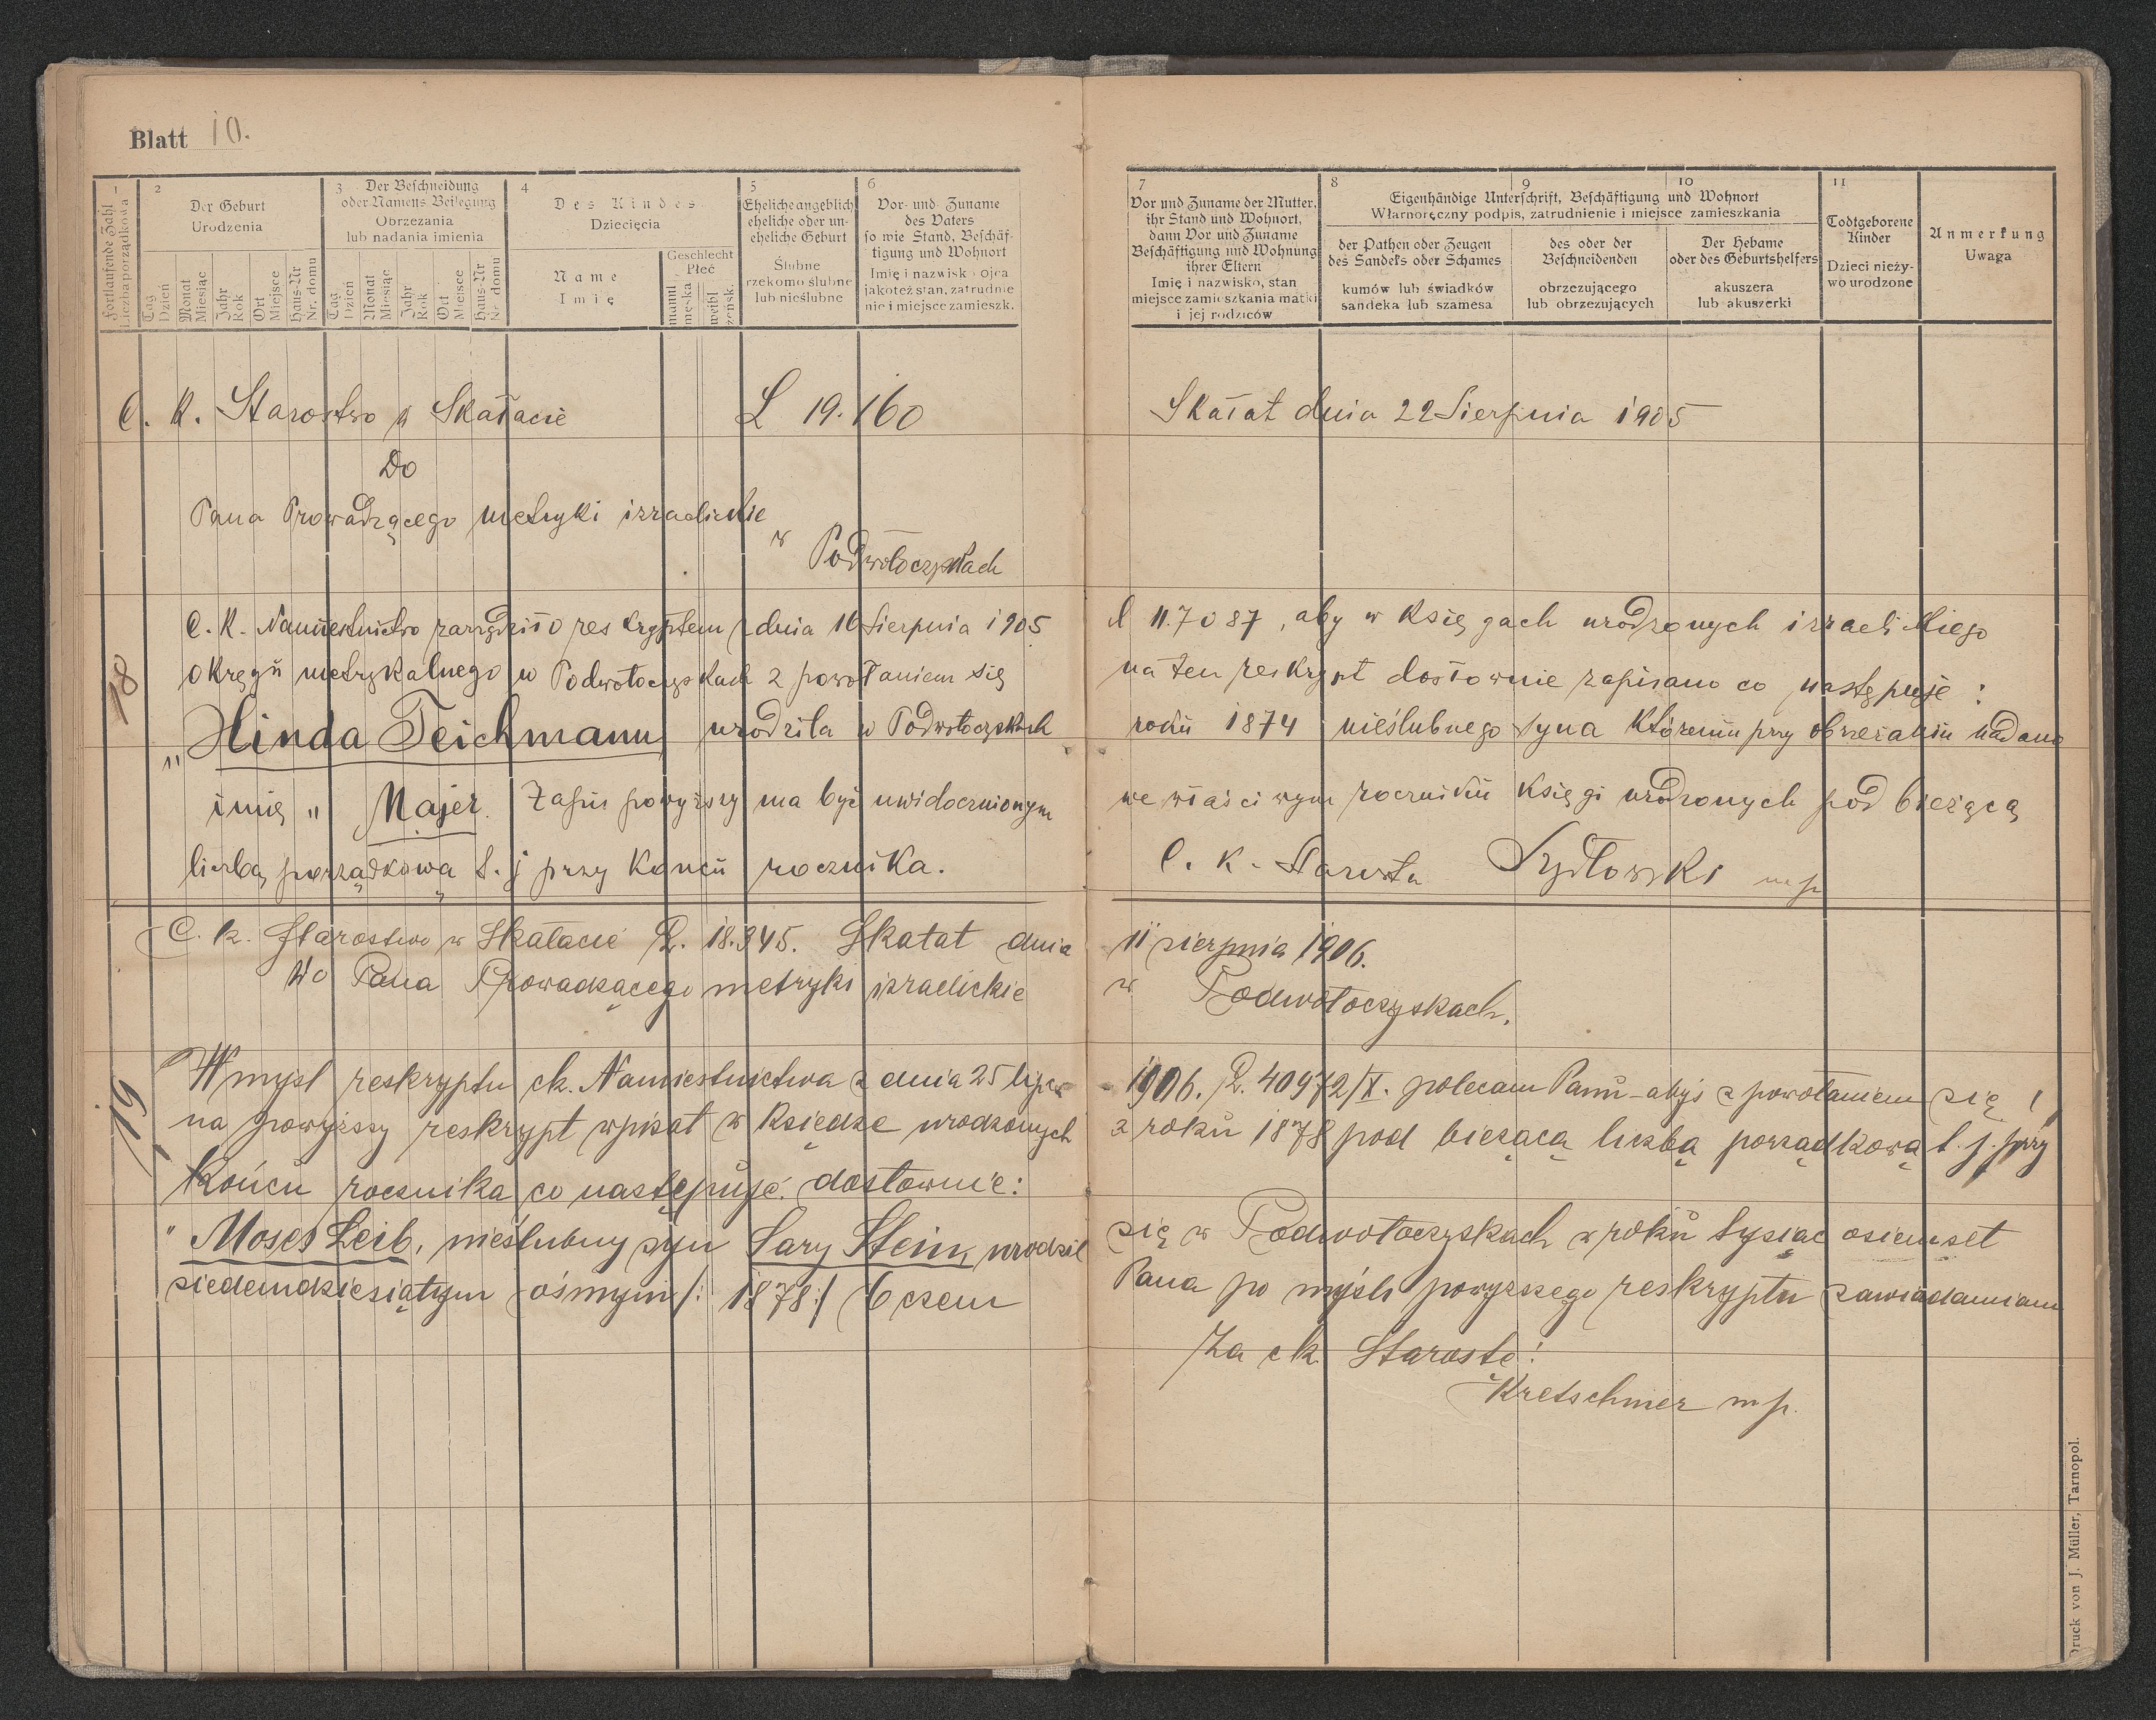 Blatt 10.
1
Fortlaufende Zahl
Liczba porządkowa
2
Der Geburt
Urodzenia
Tag
Dzień
Monat
Miesiąc
Jahr
Rok
Ort
Miejsce
Haus-Nr
Nr. domu
3
Der Beschneidung
oder Namens Beilegung
Obrzezania
lub nadania imienia
Tag
Dzień
Monat
Miesiąc
Jahr
Rok
Ort
Miejsce
Haus-Nr
Nr. domu
4
Des Kindes
Dziecięcia
Name
Imię
Geschlecht
Płeć
männl
męska
weibl
żeńsk.
5
Eheliche angeblich
eheliche oder un-
eheliche Geburt
Ślubne
rzekomo ślubne
lub nieślubne
6
Vor- und Zuname
des Vaters
so wie Stand, Beschäf-
tigung und Wohnort
Imię i nazwisko ojca
jakoteż stan, zatrudnie
nie i miejsce zamieszk.
7
Vor und Zuname der Mutter,
ihr Stand und Wohnort,
dann Vor und Zuname
Beschäftigung und Wohnung
ihrer Eltern
Imię i nazwisko, stan
miejsce zamieszkania matki
i jej rodziców
8
9
10
Eigenhändige Unterschrift, Beschäftigung und Wohnort
Własnoręczny podpis, zatrudnienie i miejsce zamieszkania
der Pathen oder Zeugen
des Sandeks oder Schames
kumów lub świadków
sandeka lub szamesa
des oder der
Beschneidenden
obrzezującego
lub obrzezujących
Der Hebame
oder des Geburtshelfers
akuszera
lub akuszerki
11
Todtgeborene
Kinder
Dzieci nieży-
wo urodzone
Anmerkung
Uwaga
C. K. Starostwo w Skałacie L 19.160 Skałat dnia 22 Sierpnia 1905
Do
Pana Prowadzącego metryki izraelickie
w Podwołoczyskach
18
C. K. Namiestnictwo zarządziło reskryptem z dnia 16 Sierpnia 1905 L 11.7087, aby w Księgach urodzonych izraelickiego
okręgu metrykalnego w Podwołoczyskach z powołaniem się na ten reskrypt dosłownie zapisano co następuje:
„Hinda Teichmann urodziła w Podwołoczyskach roku 1874 nieślubnego syna któremu przy obrzezaniu nadano
imię „Majer. Zapis powyższy ma być uwidocznionym we właściwym roczniku Księgi urodzonych pod bieżącą
liczbą porządkową t. j przy Końcu rocznika. C. K. Starosta Szydłowski mp
C. k. Starostwo w Skałacie L. 18.345. Skałat dnia 11 sierpnia 1906.
Do Pana Prowadzącego metryki izraelickie w Podwołoczyskach.
19
W myśl reskryptu ck. Namiestnictwa z dnia 25 lipca 1906. L. 40972/X. polecam Panu abyś z powołaniem się
na powyższy reskrypt wpisał w księdze urodzonych z roku 1878 pod bieżącą liczbą porządkową t. j. przy
Końcu rocznika co następuje dosłownie:
„Moses Leib, nieślubny syn Sary Stein, urodził się w Podwołoczyskach w roku tysiąc osiemset
siedemdziesiątym ósmym /: 1878:/ O czem Pana po myśli powyższego reskryptu zawiadamiam
Za ck Starostę:
Kretschmer mp.
Druck von J. Müller, Tarnopol.